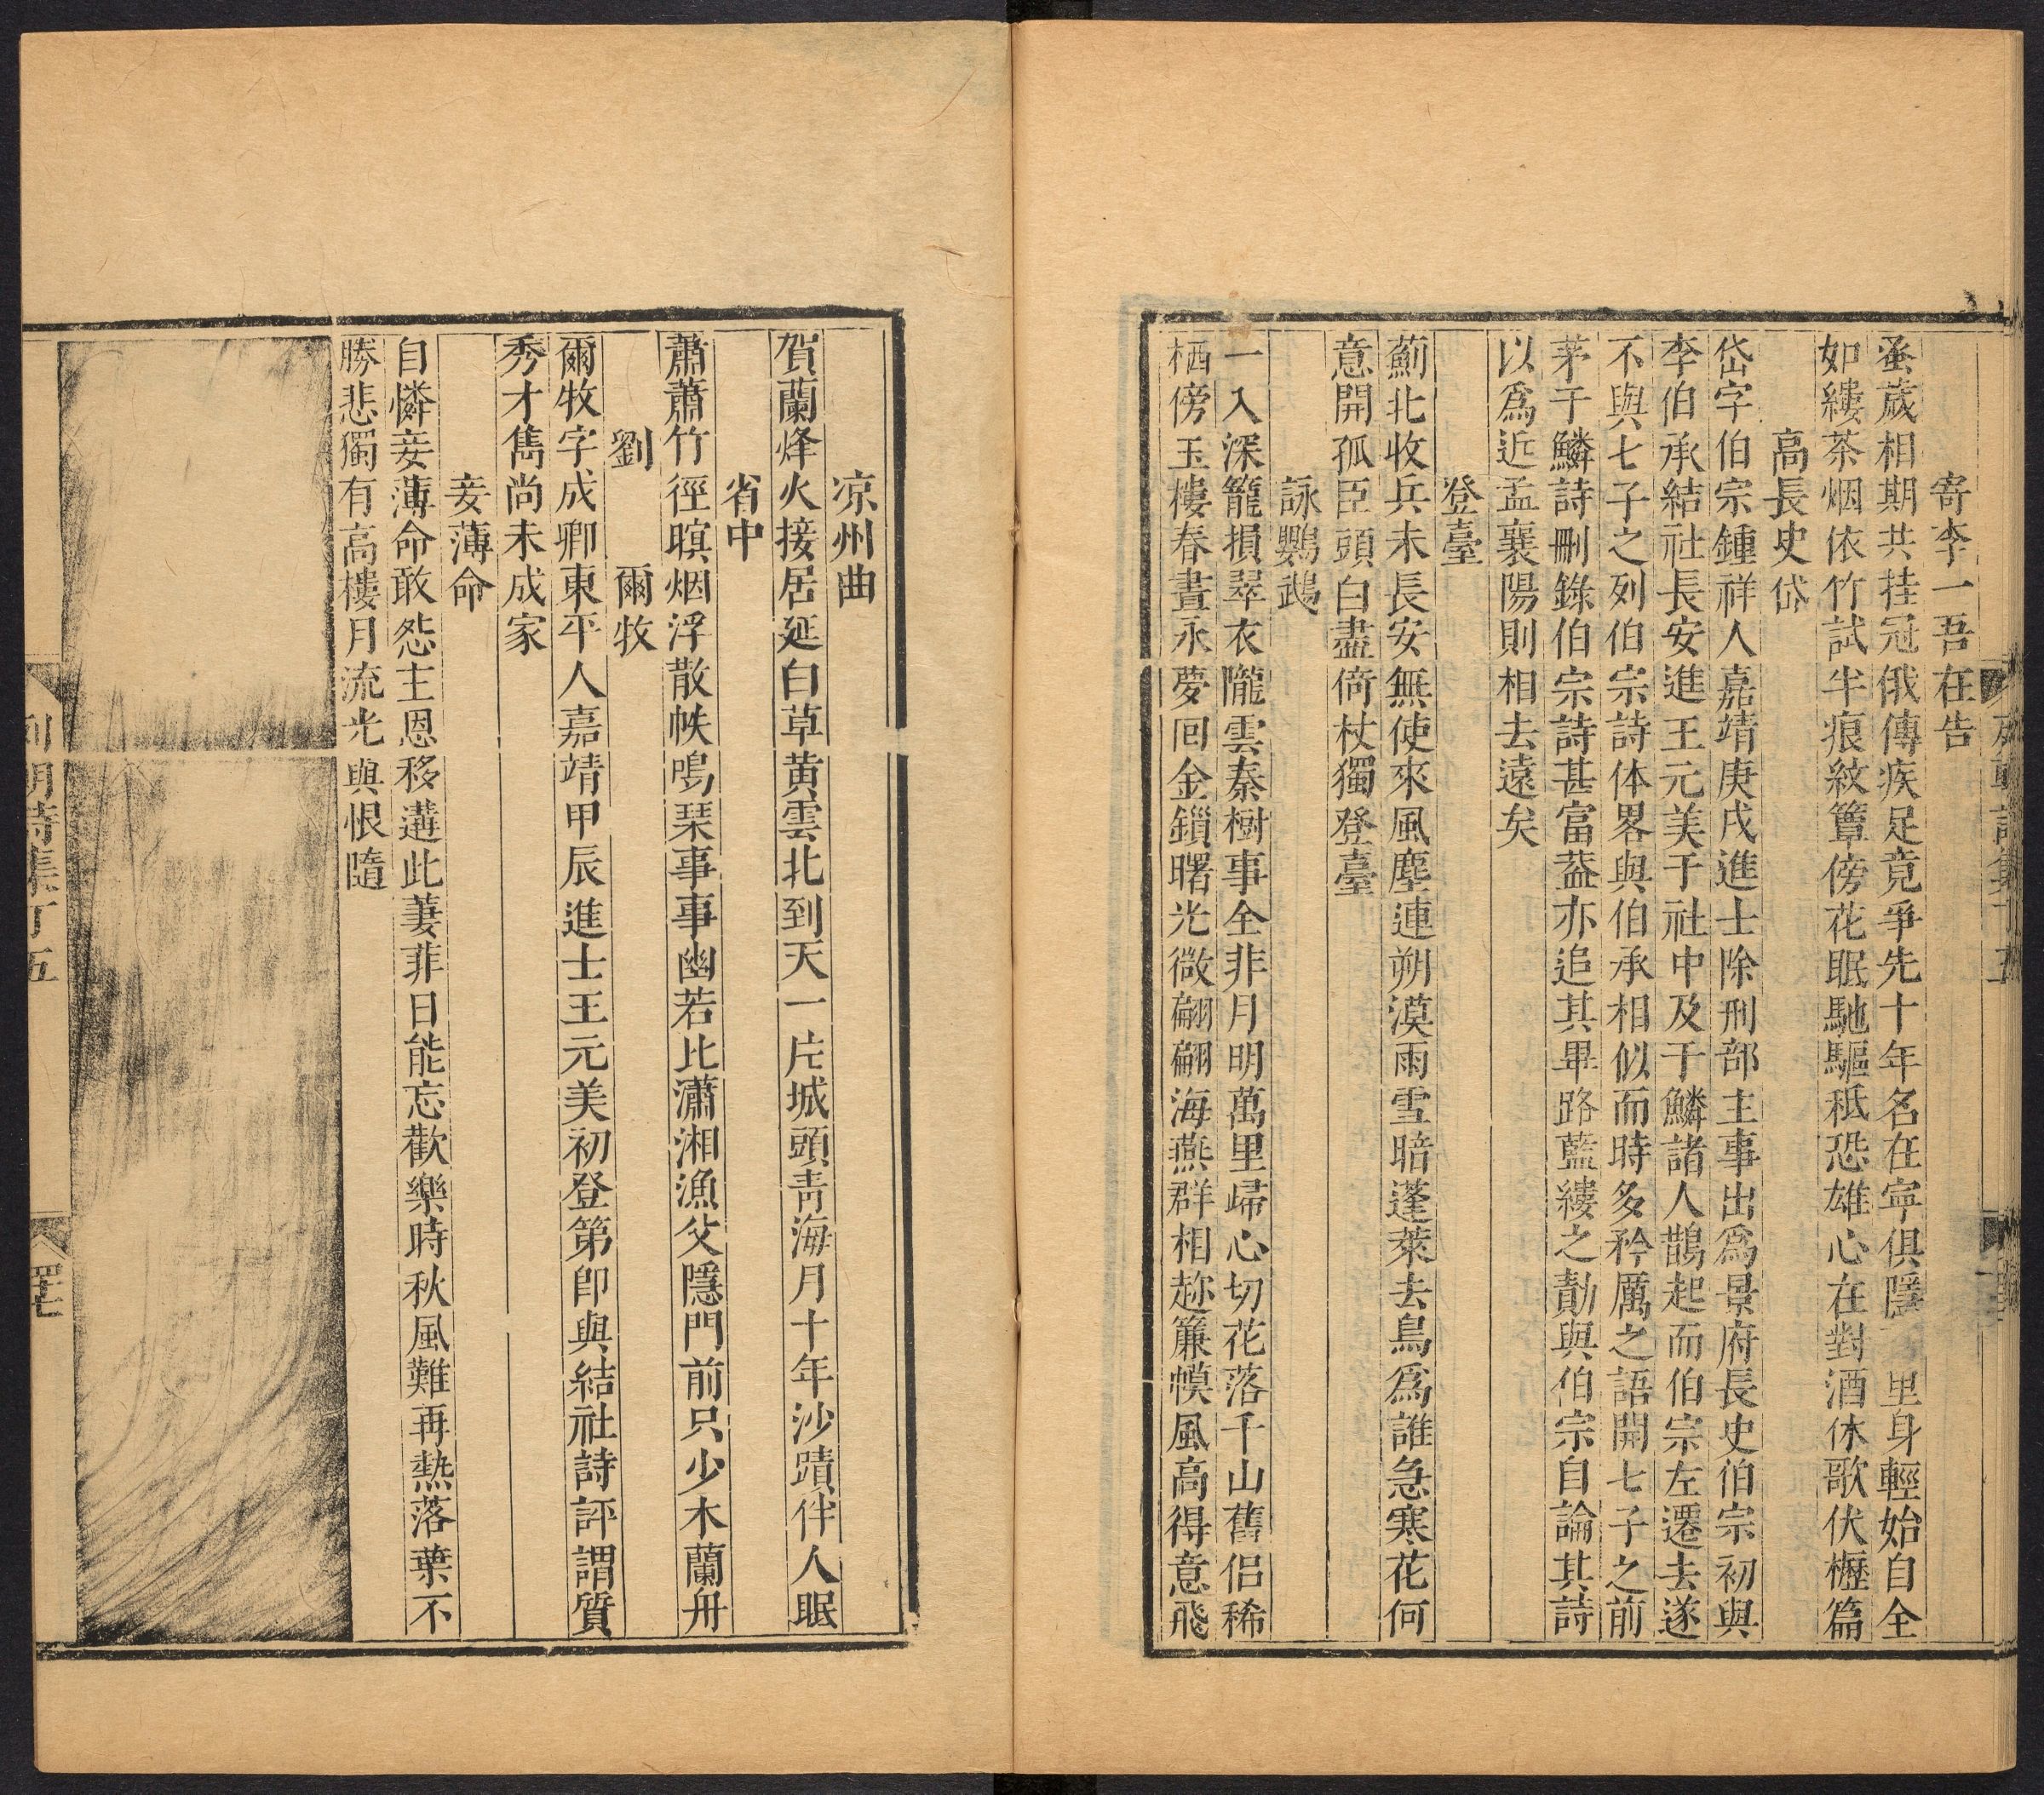 寄李一吾在告
蚤歲相期共挂冠俄傳疾足竟爭先十年名在寧俱隱 里身輕始自全
如縷茶烟依竹試半痕紋簟傍花眠馳驅秪恐雄心在對酒休歌伏櫪篇
高長史岱
岱字伯宗鍾祥人嘉靖庚戌進士除刑部主事出爲景府長史伯宗初與
李伯承結社長安進王元美于社中及于鱗諸人鵲起而伯宗左遷去遂
不與七子之列伯宗詩体畧與伯承相似而時多矜厲之語開七子之前
茅于鱗詩刪錄伯宗詩甚富葢亦追其畢路藍縷之勣與伯宗自論其詩
以爲近孟襄陽則相去遠矣
登臺
薊北收兵未長安無使來風塵連朔漠雨雪暗蓬萊去鳥爲誰急寒花何
意開孤臣頭白盡倚杖獨登臺
詠鸚鵡
一入深籠損翠衣隴雲秦樹事全非月明萬里歸心切花落千山舊侶稀
栖傍玉樓春晝永夢回金鎖曙光微翩翩海燕群相趂簾幙風高得意飛
凉州曲
賀蘭烽火接居延白草黄雲北到天一片城頭靑海月十年沙蹟伴人眠
省中
蕭蕭竹徑暝烟浮散帙鳴琹事事幽若比瀟湘漁父隱門前只少木蘭舟
劉 爾牧
爾牧字成卿東平人嘉靖甲辰進士王元美初登第卽與結社詩評謂質
秀才雋尚未成家
妾薄命
自憐妾薄命敢怨主恩移遘此萋菲日能忘歡樂時秋風難再熱落葉不
勝悲獨有高樓月流光與恨隨
列朝詩集丁五